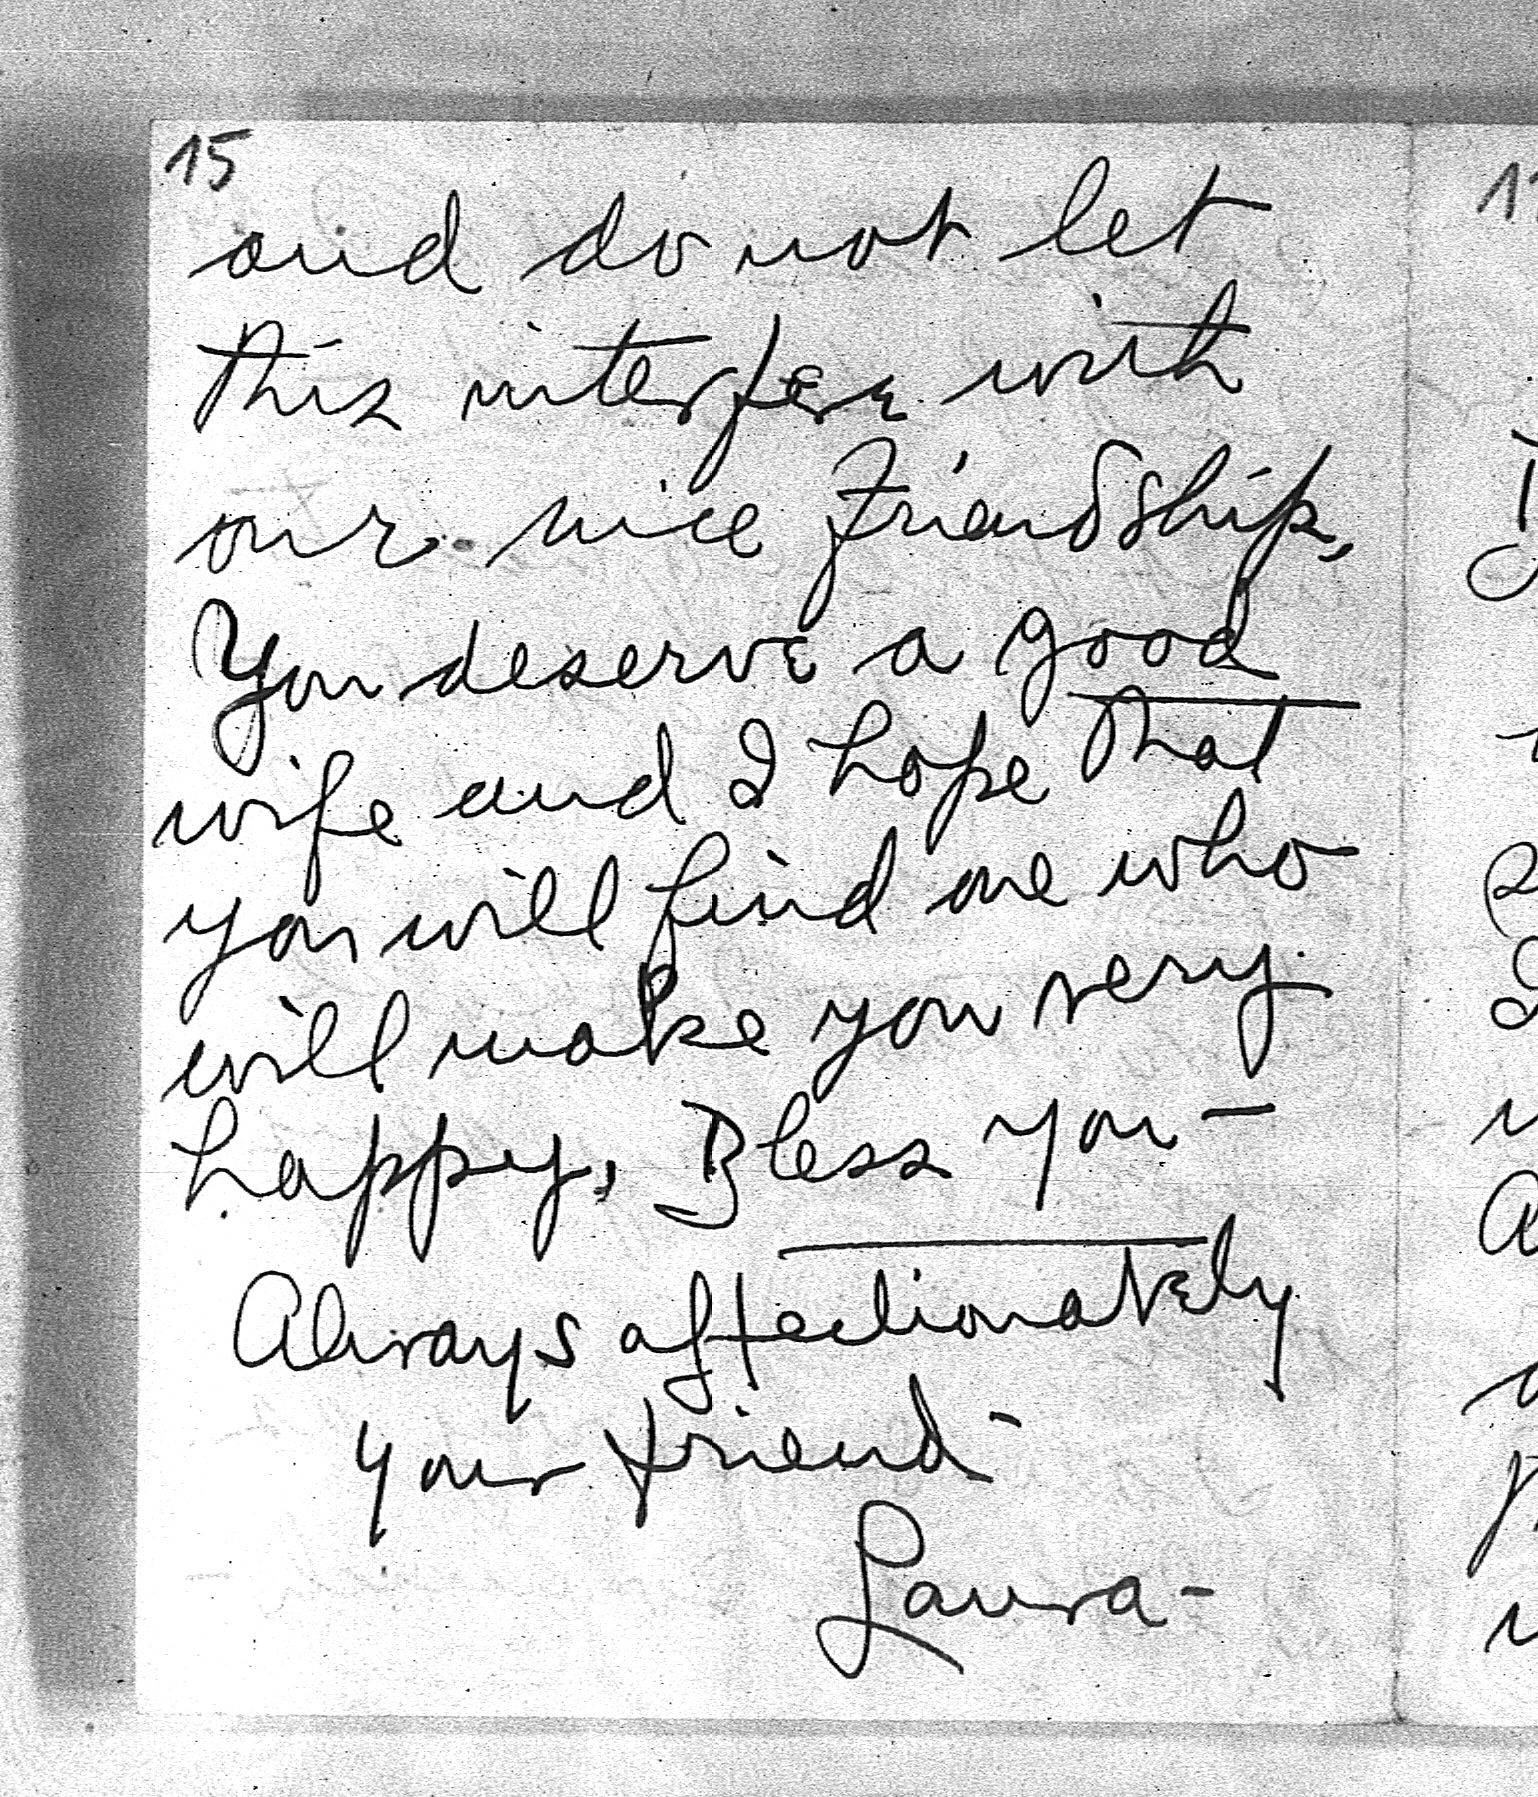 15
and do not let
this interfere with
our nice friendship,
You deserve a good
wife and I hope that
you will find one who
will make you very
happy, Bless you -
Always affectionately
your friend -
Laura -